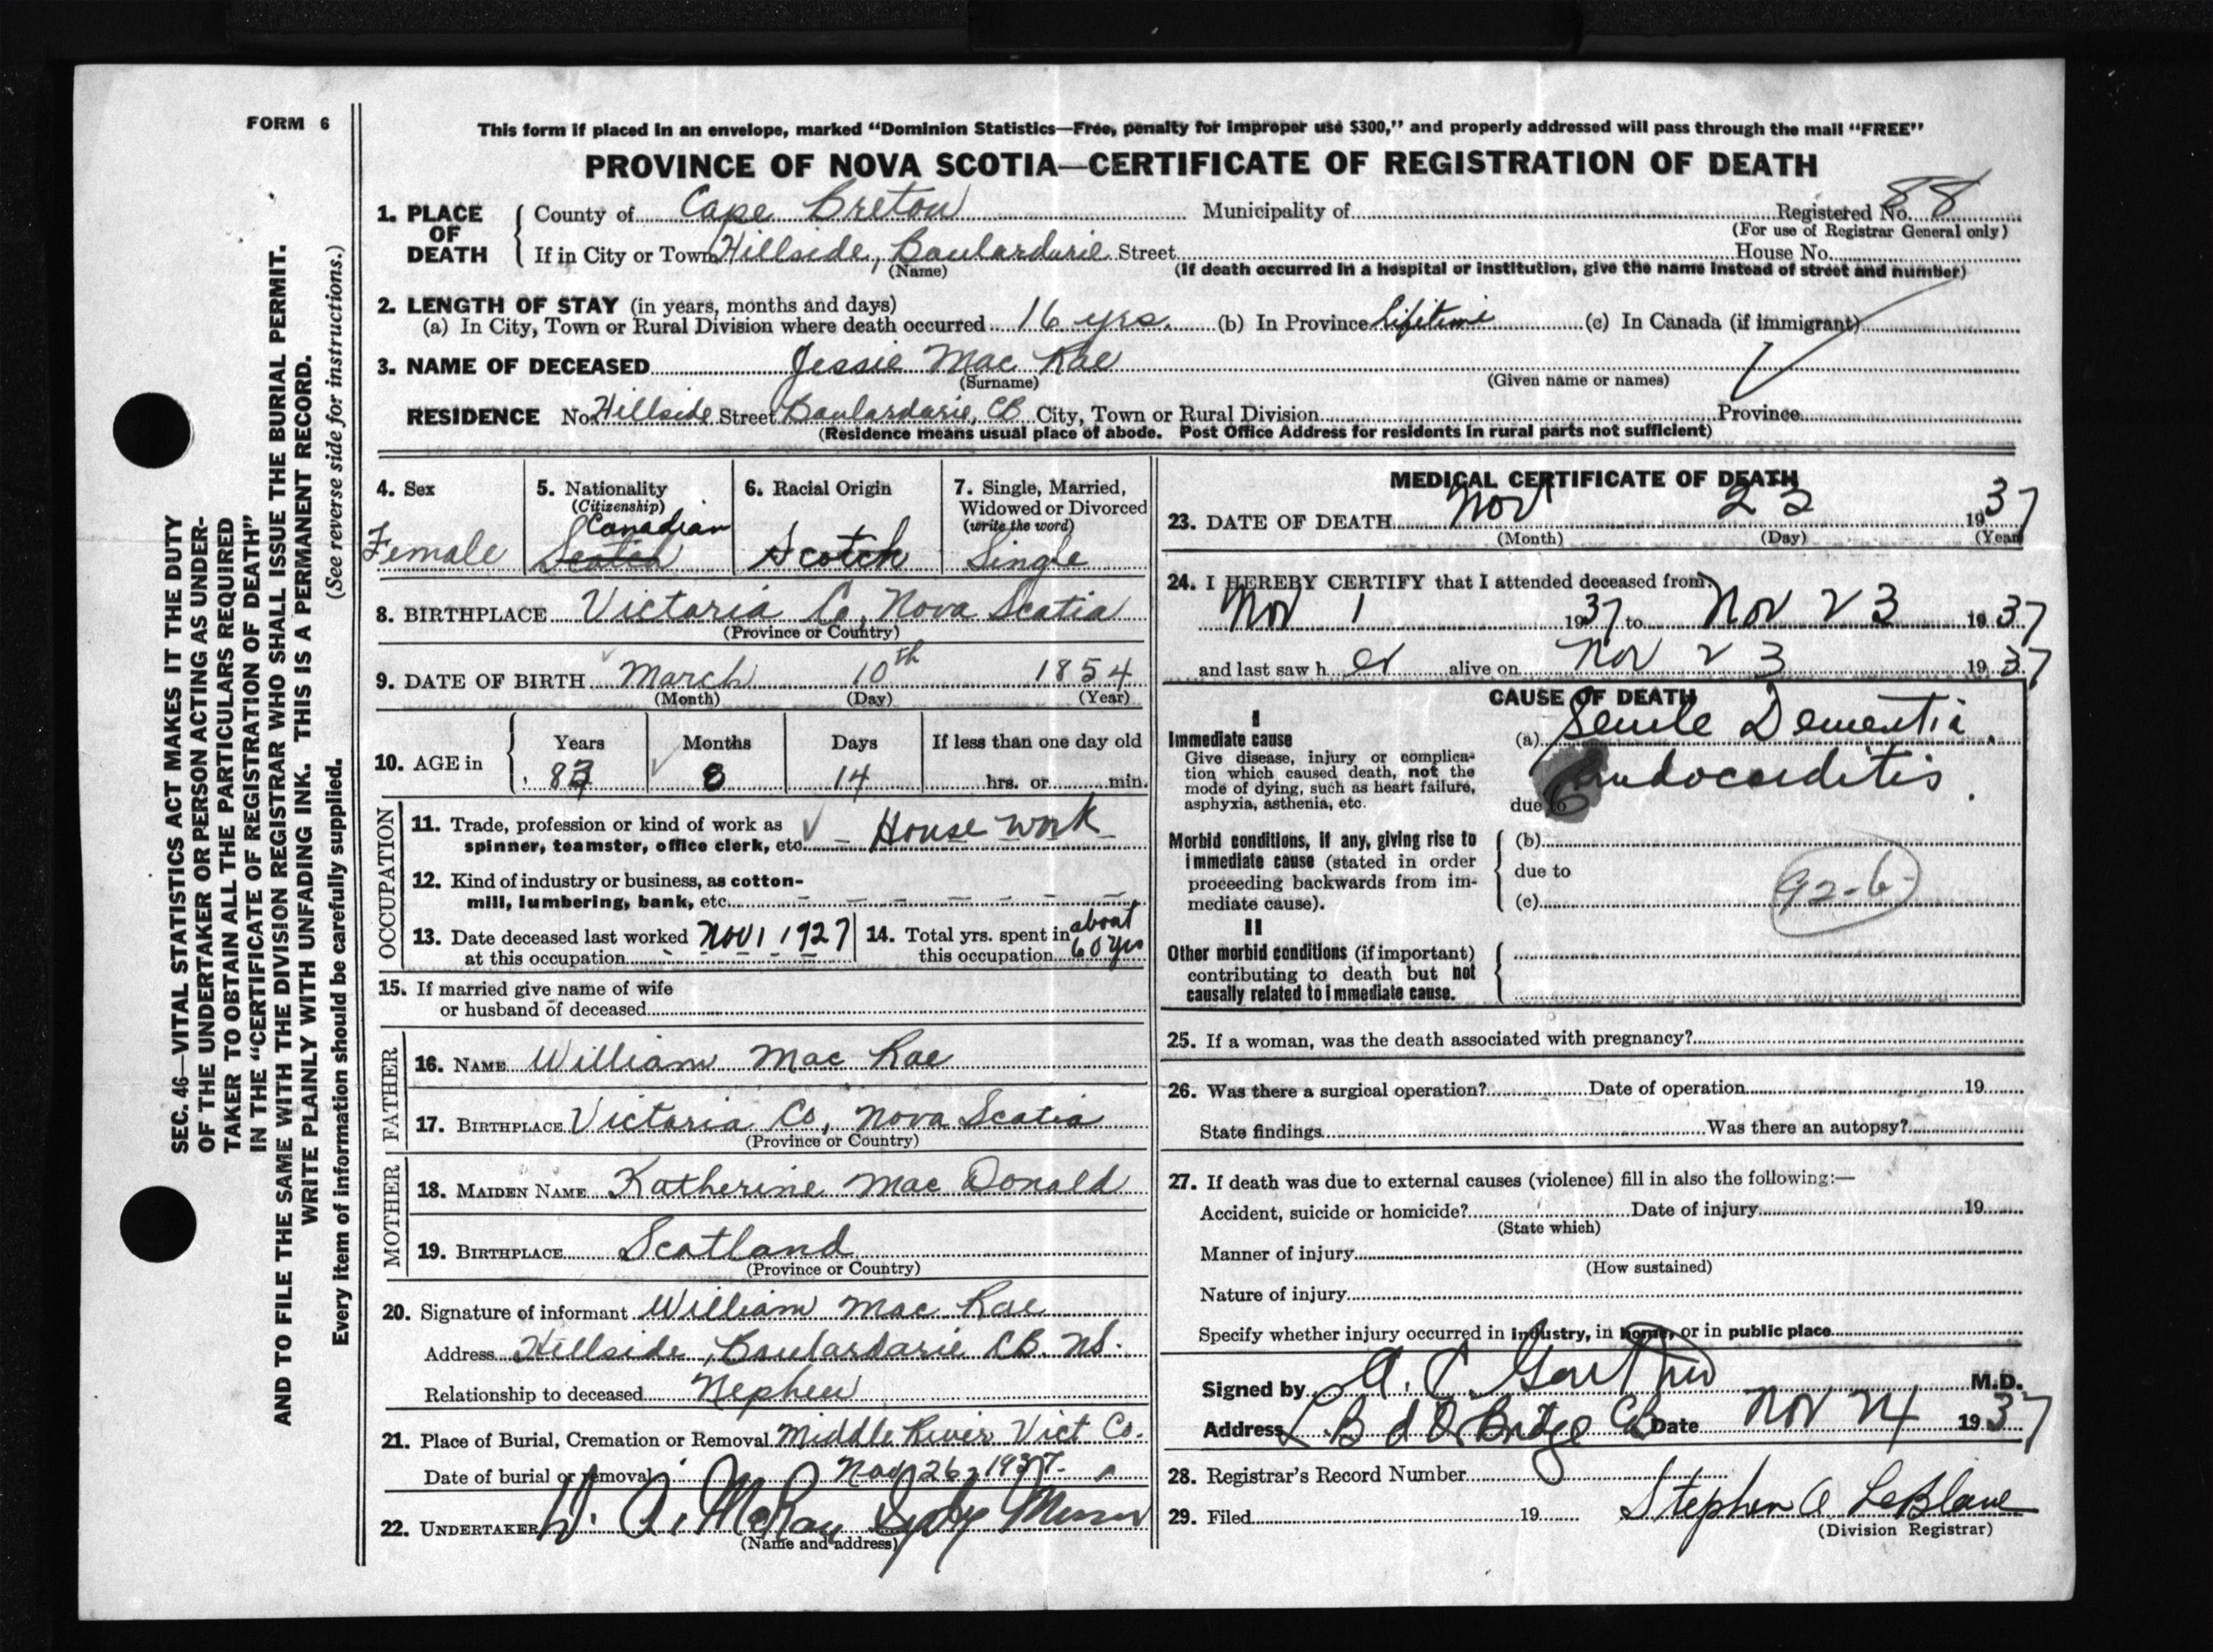 FORM 6
SEC. 46—VITAL STATISTICS ACT MAKES IT THE DUTY
OF THE UNDERTAKER OR PERSON ACTING AS UNDER-
TAKER TO OBTAIN ALL THE PARTICULARS REQUIRED
IN THE "CERTIFICATE OF REGISTRATION OF DEATH"
AND TO FILE THE SAME WITH THE DIVISION REGISTRAR WHO SHALL ISSUE THE BURIAL PERMIT.
WRITE PLAINLY WITH UNFADING INK. THIS IS A PERMANENT RECORD.
Every item of information should be carefully supplied. (See reverse side for instructions.)
This form if placed in an envelope, marked "Dominion Statistics—Free, penalty for improper use $300," and properly addressed will pass through the mail "FREE"
PROVINCE OF NOVA SCOTIA—CERTIFICATE OF REGISTRATION OF DEATH
1. PLACE OF DEATH County of Cape Breton Municipality of Registered No. 88
(For use of Registrar General only)
If in City or Town Hillside, Boulardarie Street House No.
(Name) (If death occurred in a hospital or institution, give the name instead of street and number)
2. LENGTH OF STAY (in years, months and days)
(a) In City, Town or Rural Division where death occurred 16 yrs. (b) In Province Lifetime (c) In Canada (if immigrant)
3. NAME OF DECEASED Jessie Mac Rae
(Surname) (Given name or names)
RESIDENCE No. Hillside Street Boulardarie, CB City, Town or Rural Division Province
(Residence means usual place of abode. Post Office Address for residents in rural parts not sufficient)
4. Sex
Female
5. Nationality
(Citizenship)
Canadian
Scotch
6. Racial Origin
Scotch
7. Single, Married,
Widowed or Divorced
(write the word)
Single
8. BIRTHPLACE Victoria Co, Nova Scotia
(Province or Country)
9. DATE OF BIRTH March 10th 1854
(Month) (Day) (Year)
10. AGE in Years Months Days If less than one day old
83 8 14 hrs. or min.
OCCUPATION
11. Trade, profession or kind of work as
spinner, teamster, office clerk, etc. House work
12. Kind of industry or business, as cotton-
mill, lumbering, bank, etc.
13. Date deceased last worked Nov 1 1927
at this occupation
14. Total yrs. spent in about
this occupation 60 yrs
15. If married give name of wife
or husband of deceased
FATHER
16. NAME William Mac Rae
17. BIRTHPLACE Victoria Co, Nova Scotia
(Province or Country)
MOTHER
18. MAIDEN NAME Katherine Mac Donald
19. BIRTHPLACE Scotland
(Province or Country)
20. Signature of informant William Mac Rae
Address Hillside, Boulardarie CB. NS.
Relationship to deceased Nephew
21. Place of Burial, Cremation or Removal Middle River Vict Co.
Date of burial or removal Nov 26, 1937.
22. UNDERTAKER W. A. McRay Sydy Mines
(Name and address)
MEDICAL CERTIFICATE OF DEATH
23. DATE OF DEATH Nov 23 1937
(Month) (Day) (Year)
24. I HEREBY CERTIFY that I attended deceased from
Nov 1 1937 to Nov 23 1937
and last saw her alive on Nov 23 1937
CAUSE OF DEATH
I
Immediate cause
Give disease, injury or complica-
tion which caused death, not the
mode of dying, such as heart failure,
asphyxia, asthenia, etc.
(a) Senile Dementia
due to Endocarditis
Morbid conditions, if any, giving rise to
immediate cause (stated in order
proceeding backwards from im-
mediate cause).
(b)
due to
(c)
92-b
II
Other morbid conditions (if important)
contributing to death but not
causally related to immediate cause.
25. If a woman, was the death associated with pregnancy?
26. Was there a surgical operation? Date of operation 19
State findings Was there an autopsy?
27. If death was due to external causes (violence) fill in also the following:—
Accident, suicide or homicide? Date of injury 19
(State which)
Manner of injury
(How sustained)
Nature of injury
Specify whether injury occurred in industry, in home, or in public place
Signed by A. C. M.D.
Address Bridge CB Date Nov 24 1937
28. Registrar's Record Number
29. Filed 19 Stephen A. LeBlanc
(Division Registrar)